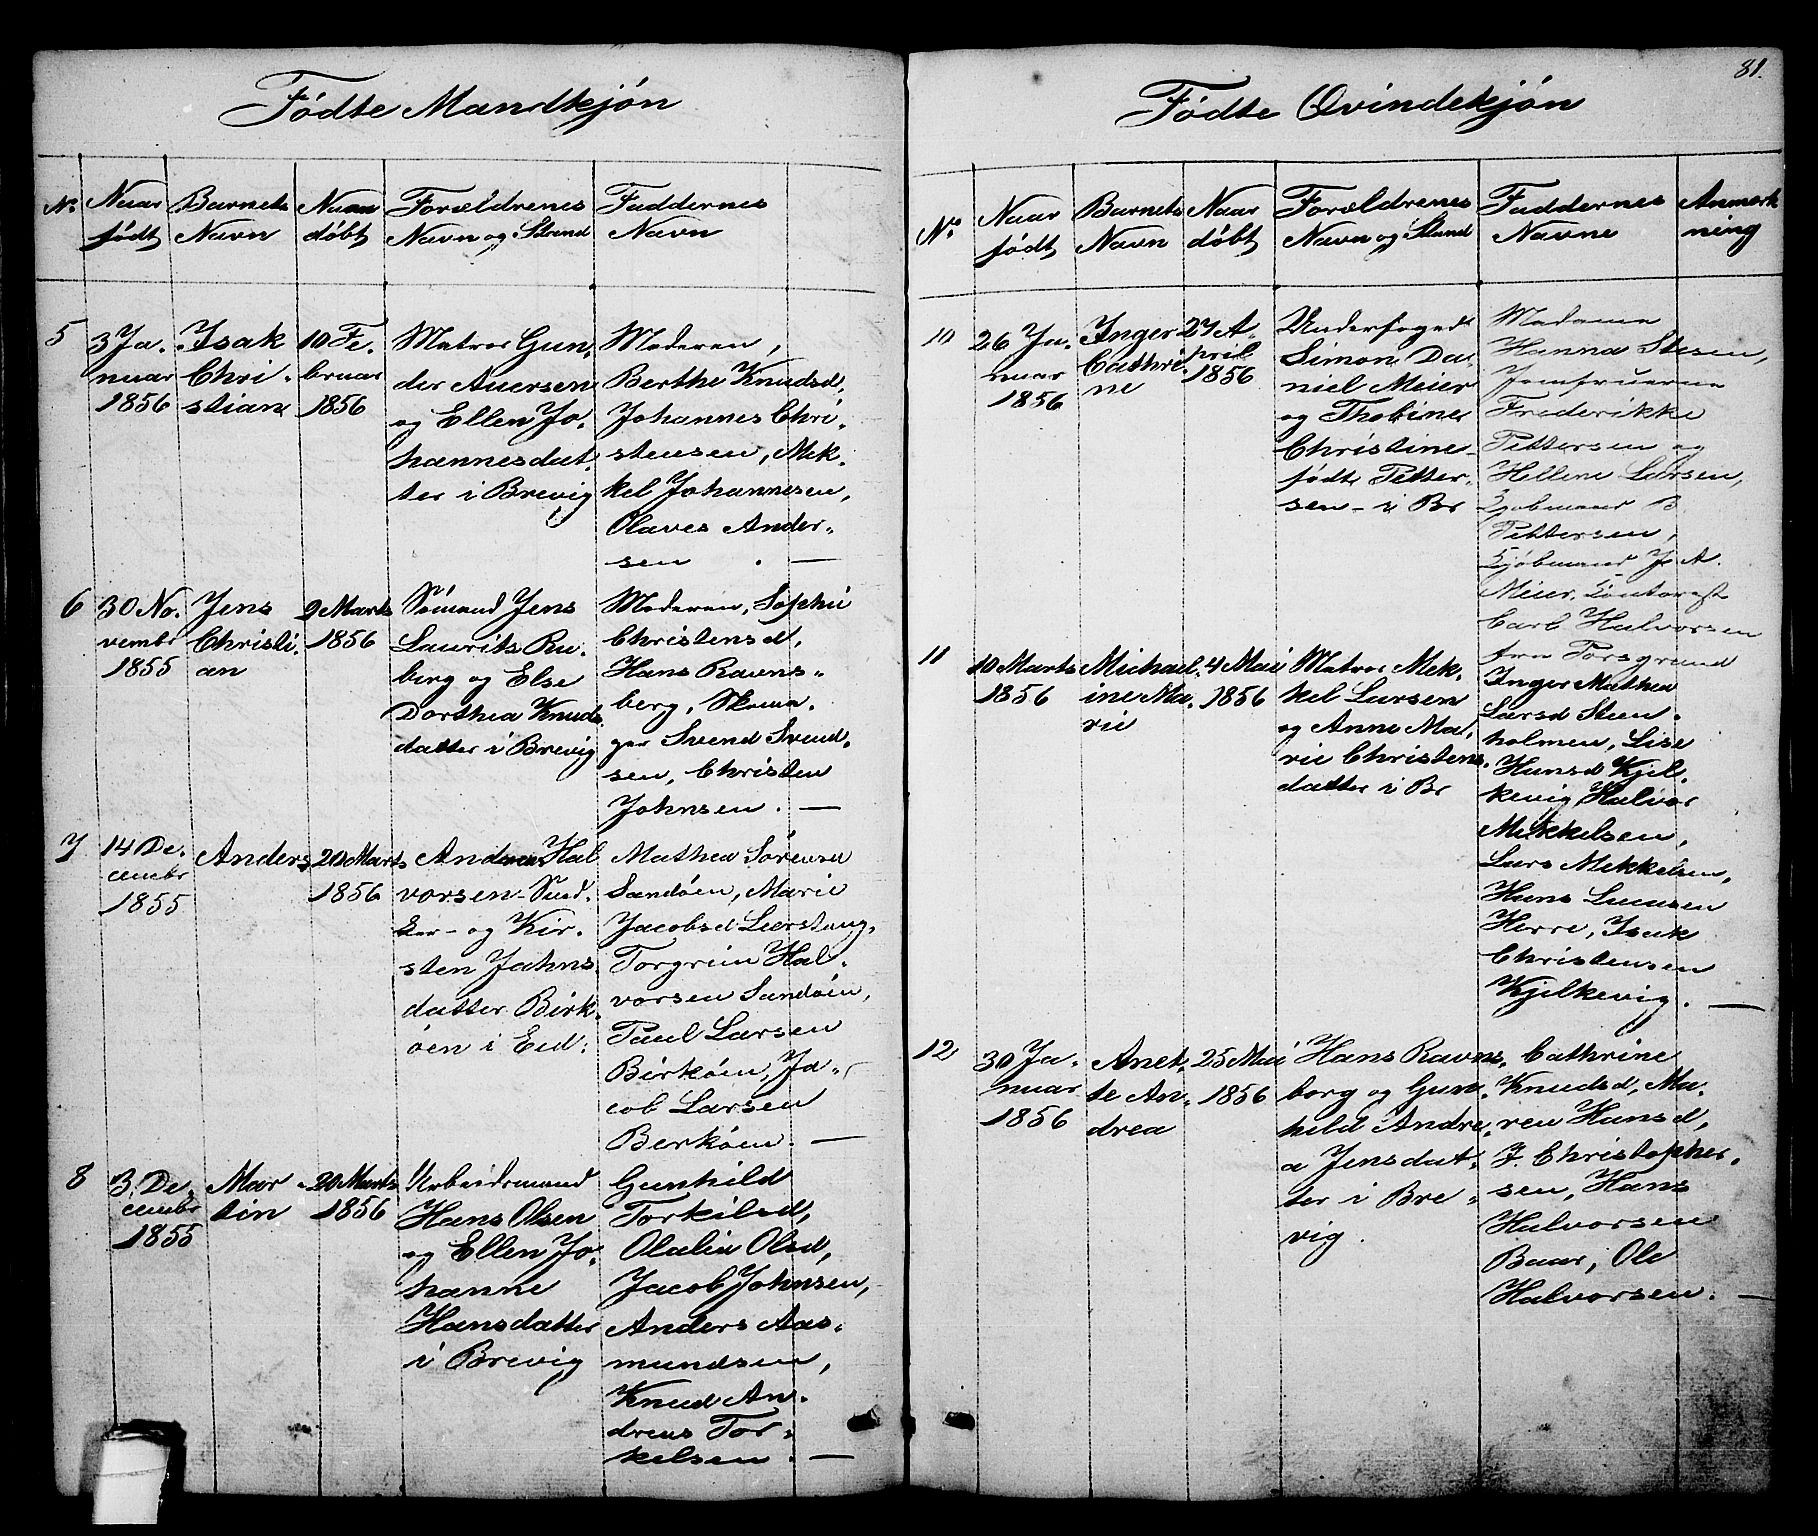 Fødte Mandkjøn
No
Naar født
Barnets Navn
Naar døbt
Forældrenes Navn og Stand
Faddernes Navn
5
3 Ja.
nuar
1856
Isak
Chri-
stian
10 Fe.
bruar
1856
Matros Gun,
der Aversen
og Ellen Jo.
hannesdat.
ter i Brevig
Moderen,
Berthe Knudsd,
Johannes Chri-
stensen, Mek.
kel Johannesen,
Olaves Ander-
sen . —
6
30 No.
vembr
1855
Jens
Christi.
an
9 Marts
1856
Sømand Jens
Laurits Ru.
berg og Else
Dorthea Knuds
datter i Brevig
Moderen, Sophie
Christensd,
Hans Ravns-
berg,
ger Svend Svend.
sen, Christen
Johnsen. —
7
14 De.
cembr
1855
Anders
20 Marts
1856
Andreas Hal
vorsen
og Kir.
sten Jahns
datter Birk.
øen i Eid:
Mathea Sørensd
Sandøen, Marie
Jacobsd Lerstang,
Torgrim Hal.
vorsen Sandøen,
Paul Larsen
Birkøen, Ja-
cob Larsen
Berkøen. —
8
3 De.
cembr
1855
Mar-
tin
20 Marts
1856
Arbeidsmand
Hans Olsen
og Ellen Jo.
hanne
Hansdatter
i Brevig
Gunhild
Torkilsd,
Olalia Olsd,
Jacob Johnsen,
Anders Aas-
mundsen,
Knud An.
dreas Tor.
kelsen. —
81.
Fødte Qvindekjøn
No
Naar født
Barnets Navn
Naar døbt
Forældrenes Navn og Stand
Faddernes Navne
Anmerk
ning
10
26 Ja.
nuar
1856
Inger
Cathri.
ne
27 A.
pril
1856
Underfoged
Simon Da.
niel Meier
og Thobine
Christine
født Petter.
sen - i Br
Madame
Hanna Stesen,
Jomfruerne
Frederikke
Pettersen og
Hellene Larsen,
Kjøbmand B
Pettersen,
Kjøbmand J. A.
Meier, Contorist
Carl Halvorsen
fra Porsgrund
11
10 Marts
1856
Michael.
ine Ma.
rie
4 Mai
1856
Matros Mek.
kel Larsen
og Anne Ma,
rie Christens.
datter i Br
Inger Mathea
Larsd Steen.
holmen, Lise
Hansd Kjel.
kevig, Halvor
Mekkelsen,
Lars Mekkelsen,
Hans Lucasen
Herre, Isak
Christensen
Kjelkevig. —
12
30 Ja.
nuar
1856
Anet.
te An.
drea
25 Mai
1856
Hans Ravns.
borg og Gun.
hild Andre.
a Jensdat.
ter i Bre-
vig.
Cathrine
Knudsd, Ma.
ren Hansd,
J. Christopher.
sen, Hans
Halvorsen
Baar, Ole
Halvorsen. —